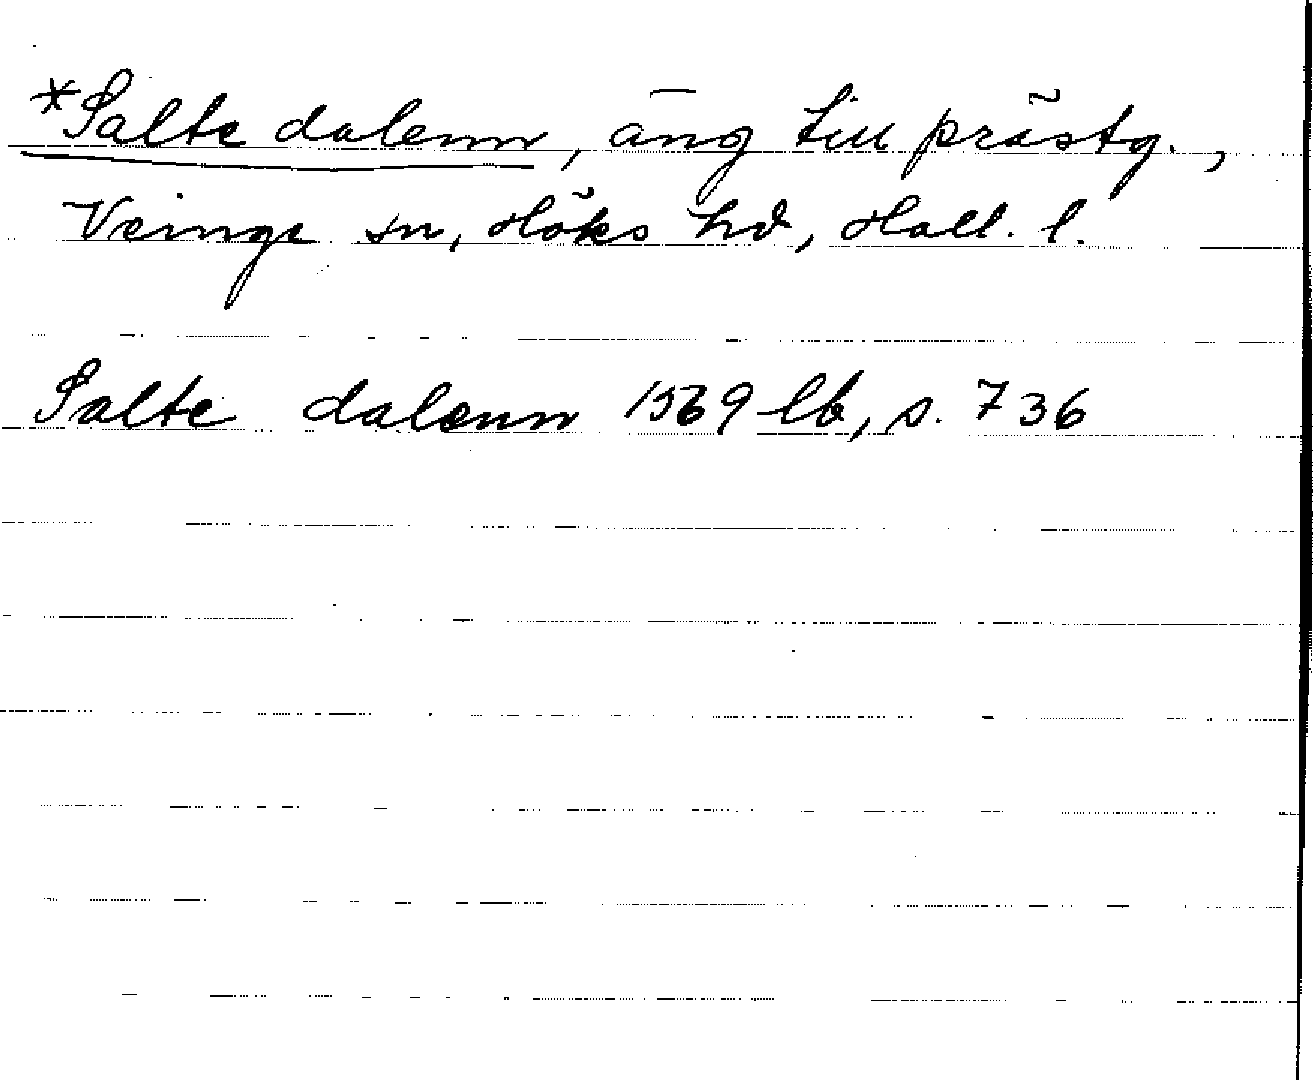 *Salte dalenn, äng till prästg.,
Veinge sn, Höks hd, Hall. l.
Salte dalenn 1569 lb, s. 736